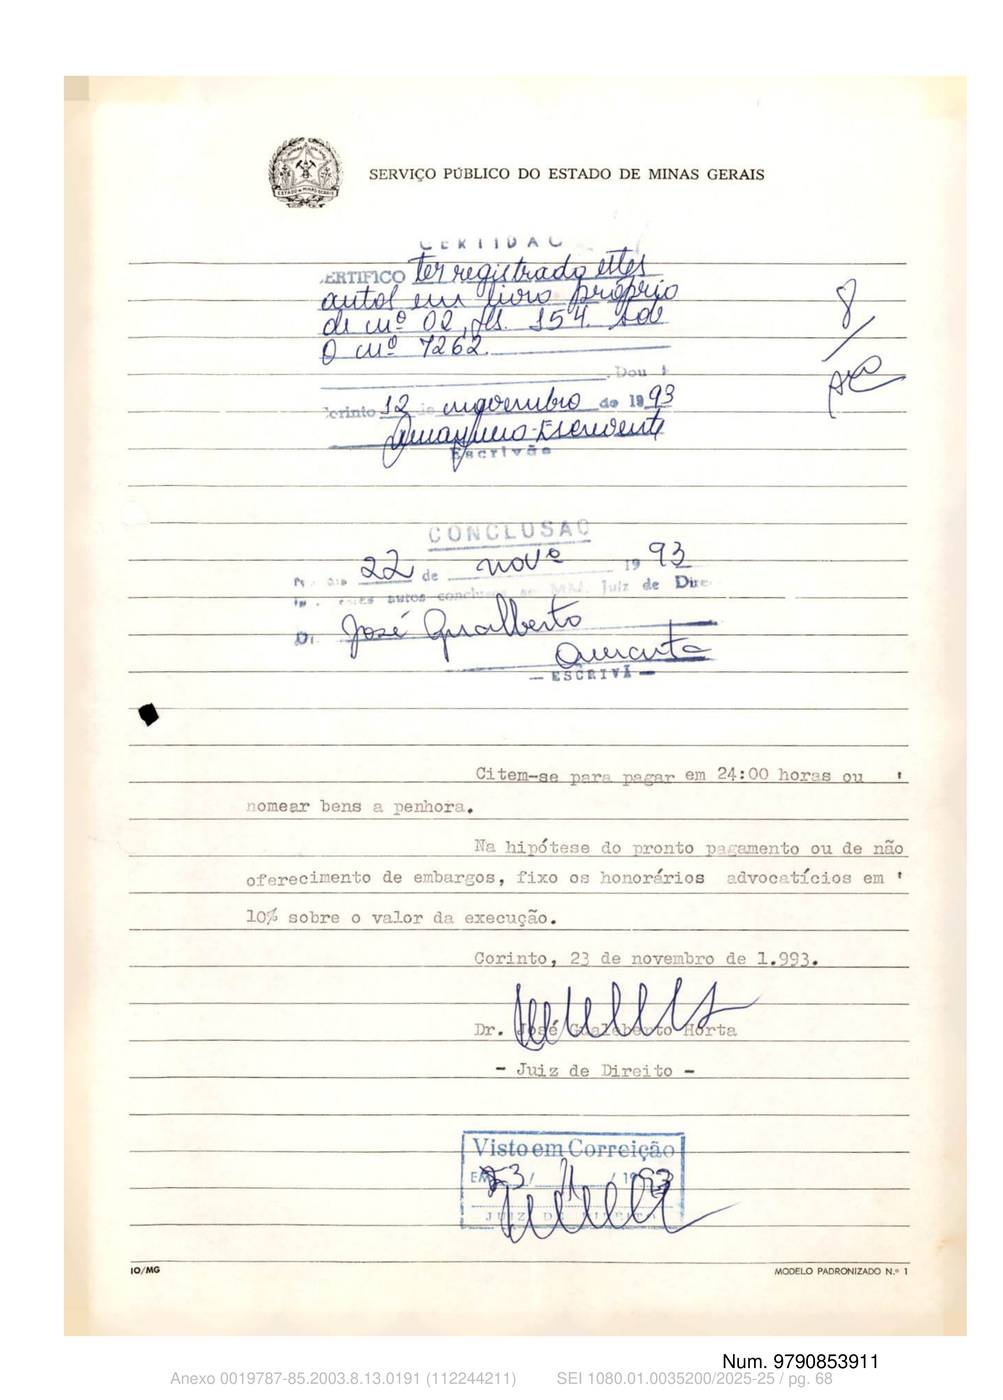 SERVIÇO PÚBLICO DO ESTADO DE MINAS GERAIS
CERTIDAO
CERTIFICO ter registrado estes
autos em livro próprio
de nº 02, fls. 154. Sob
O nº 7262.
. Dou f
Corinto 12 de novembro de 19 93
Escrevente
Escrivão
8
CONCLUSAO
22 de novº 19 93
estes autos conclusos ao MM. Juiz de Dire
Dr. José Gualberto
Quarenta
— ESCRIVÃ —
Citem-se para pagar em 24:00 horas ou '
nomear bens a penhora.
Na hipótese do pronto pagamento ou de não
oferecimento de embargos, fixo os honorários advocatícios em '
10% sobre o valor da execução.
Corinto, 23 de novembro de 1.993.
Dr. José Gualberto Horta
- Juiz de Direito -
Visto em Correição
EM 23/ 11 / 1993
JUIZ DE DIREITO
IO/MG
MODELO PADRONIZADO N.º 1
Num. 9790853911
Anexo 0019787-85.2003.8.13.0191 (112244211) SEI 1080.01.0035200/2025-25 / pg. 68